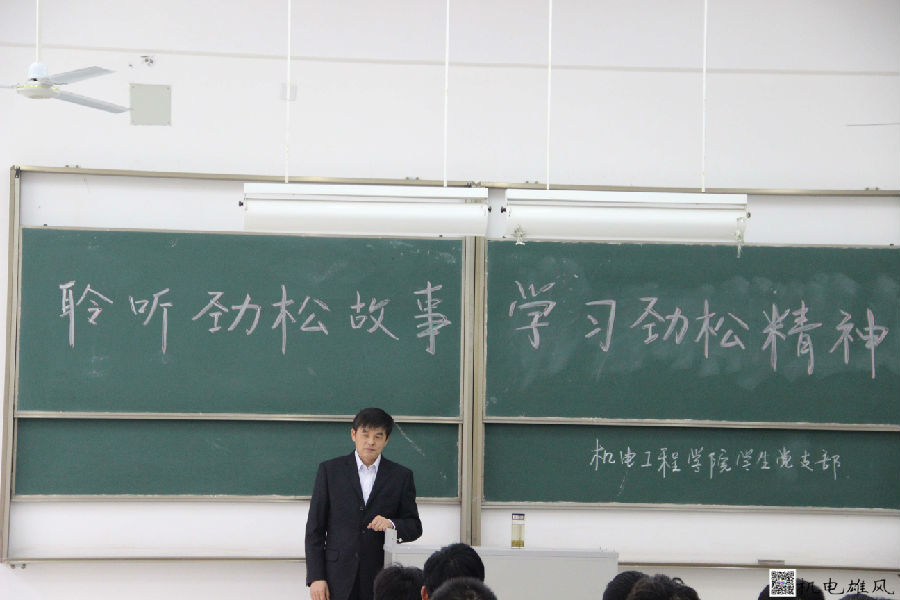 聆听劲松故事 学习劲松精神
机电工程学院学生党支部
机电雄风